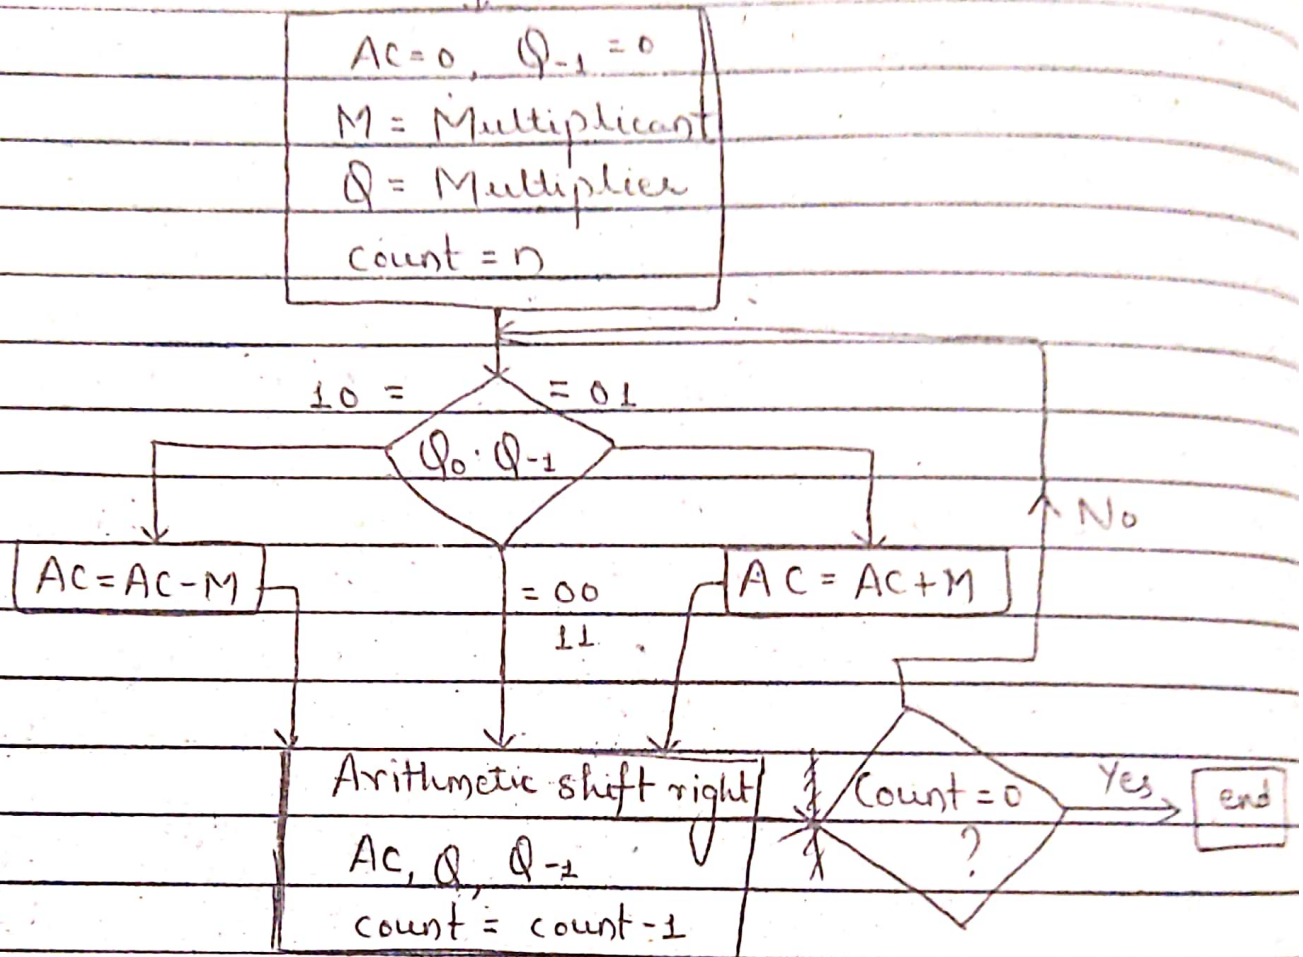 AC=0, Q-1 = 0
M = Multiplicant
Q = Multiplier
count = n
10 =
= 01
Q0 . Q-1
No
AC = AC-M
= 00
11
AC = AC+M
Arithmetic shift right
AC, Q, Q-1
count = count-1
Count = 0
?
Yes
end